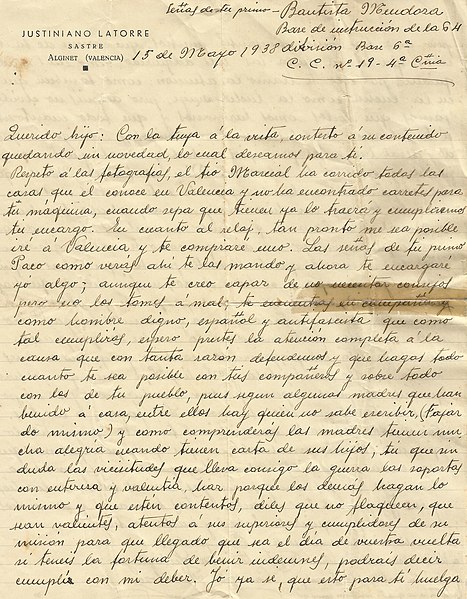 Señas de tu primo - Bautista Mendoza
Base de instrucción de la 64
división Base 6ª
C. C. nº 19 - 4ª Cñia
JUSTINIANO LATORRE
SASTRE
ALGINET (VALENCIA)
15 de Mayo 1938
Querido hijo: Con la tuya á la vista, contesto á su contenido
quedando sin novedad, lo cual deseamos para ti.
Respeto á las fotografias, el tio Marcial ha corrido todas las
casas que el conoce en Valencia y no ha encontrado carretes para
tu maquina, cuando sepa que tienen ya lo traerá y cumpliremos
tu encargo. En cuanto al reloj, tan pronto me sea posible
iré á Valencia y te comprare uno. Las señas de tu primo
Paco como verás ahi te las mando y ahora te encargaré
yo algo; aunque te creo capaz de no necesitar consejos
pero no los tomes á mal; te encuentras en
como hombre digno, español y antifascista que como
tal cumpliras, espero prestes la atención completa á la
causa que con tanta razon defendemos y que hagas todo
cuanto te sea posible con tus compañeros y sobre todo
con los de tu pueblo, pues segun algunas madres que han
benido á casa, entre ellos hay quien no sabe escribir, (Fajar
do mismo) y como comprenderás las madres tienen mu
cha alegria cuando tienen carta de sus hijos; tu que sin
duda las vicisitudes que lleva consigo la guerra las soportas
con entereza y valentia, haz porque los demás hagan lo
mismo y que esten contentos, diles que no flaqueen, que
sean valientes, atentos a sus superiores y cumplidores de su
misión para que llegado que sea el dia de vuestra vuelta
si teneis la fortuna de benir indemnes, podrais decir
cumpli con mi deber. Yo ya se, que esto para ti huelga